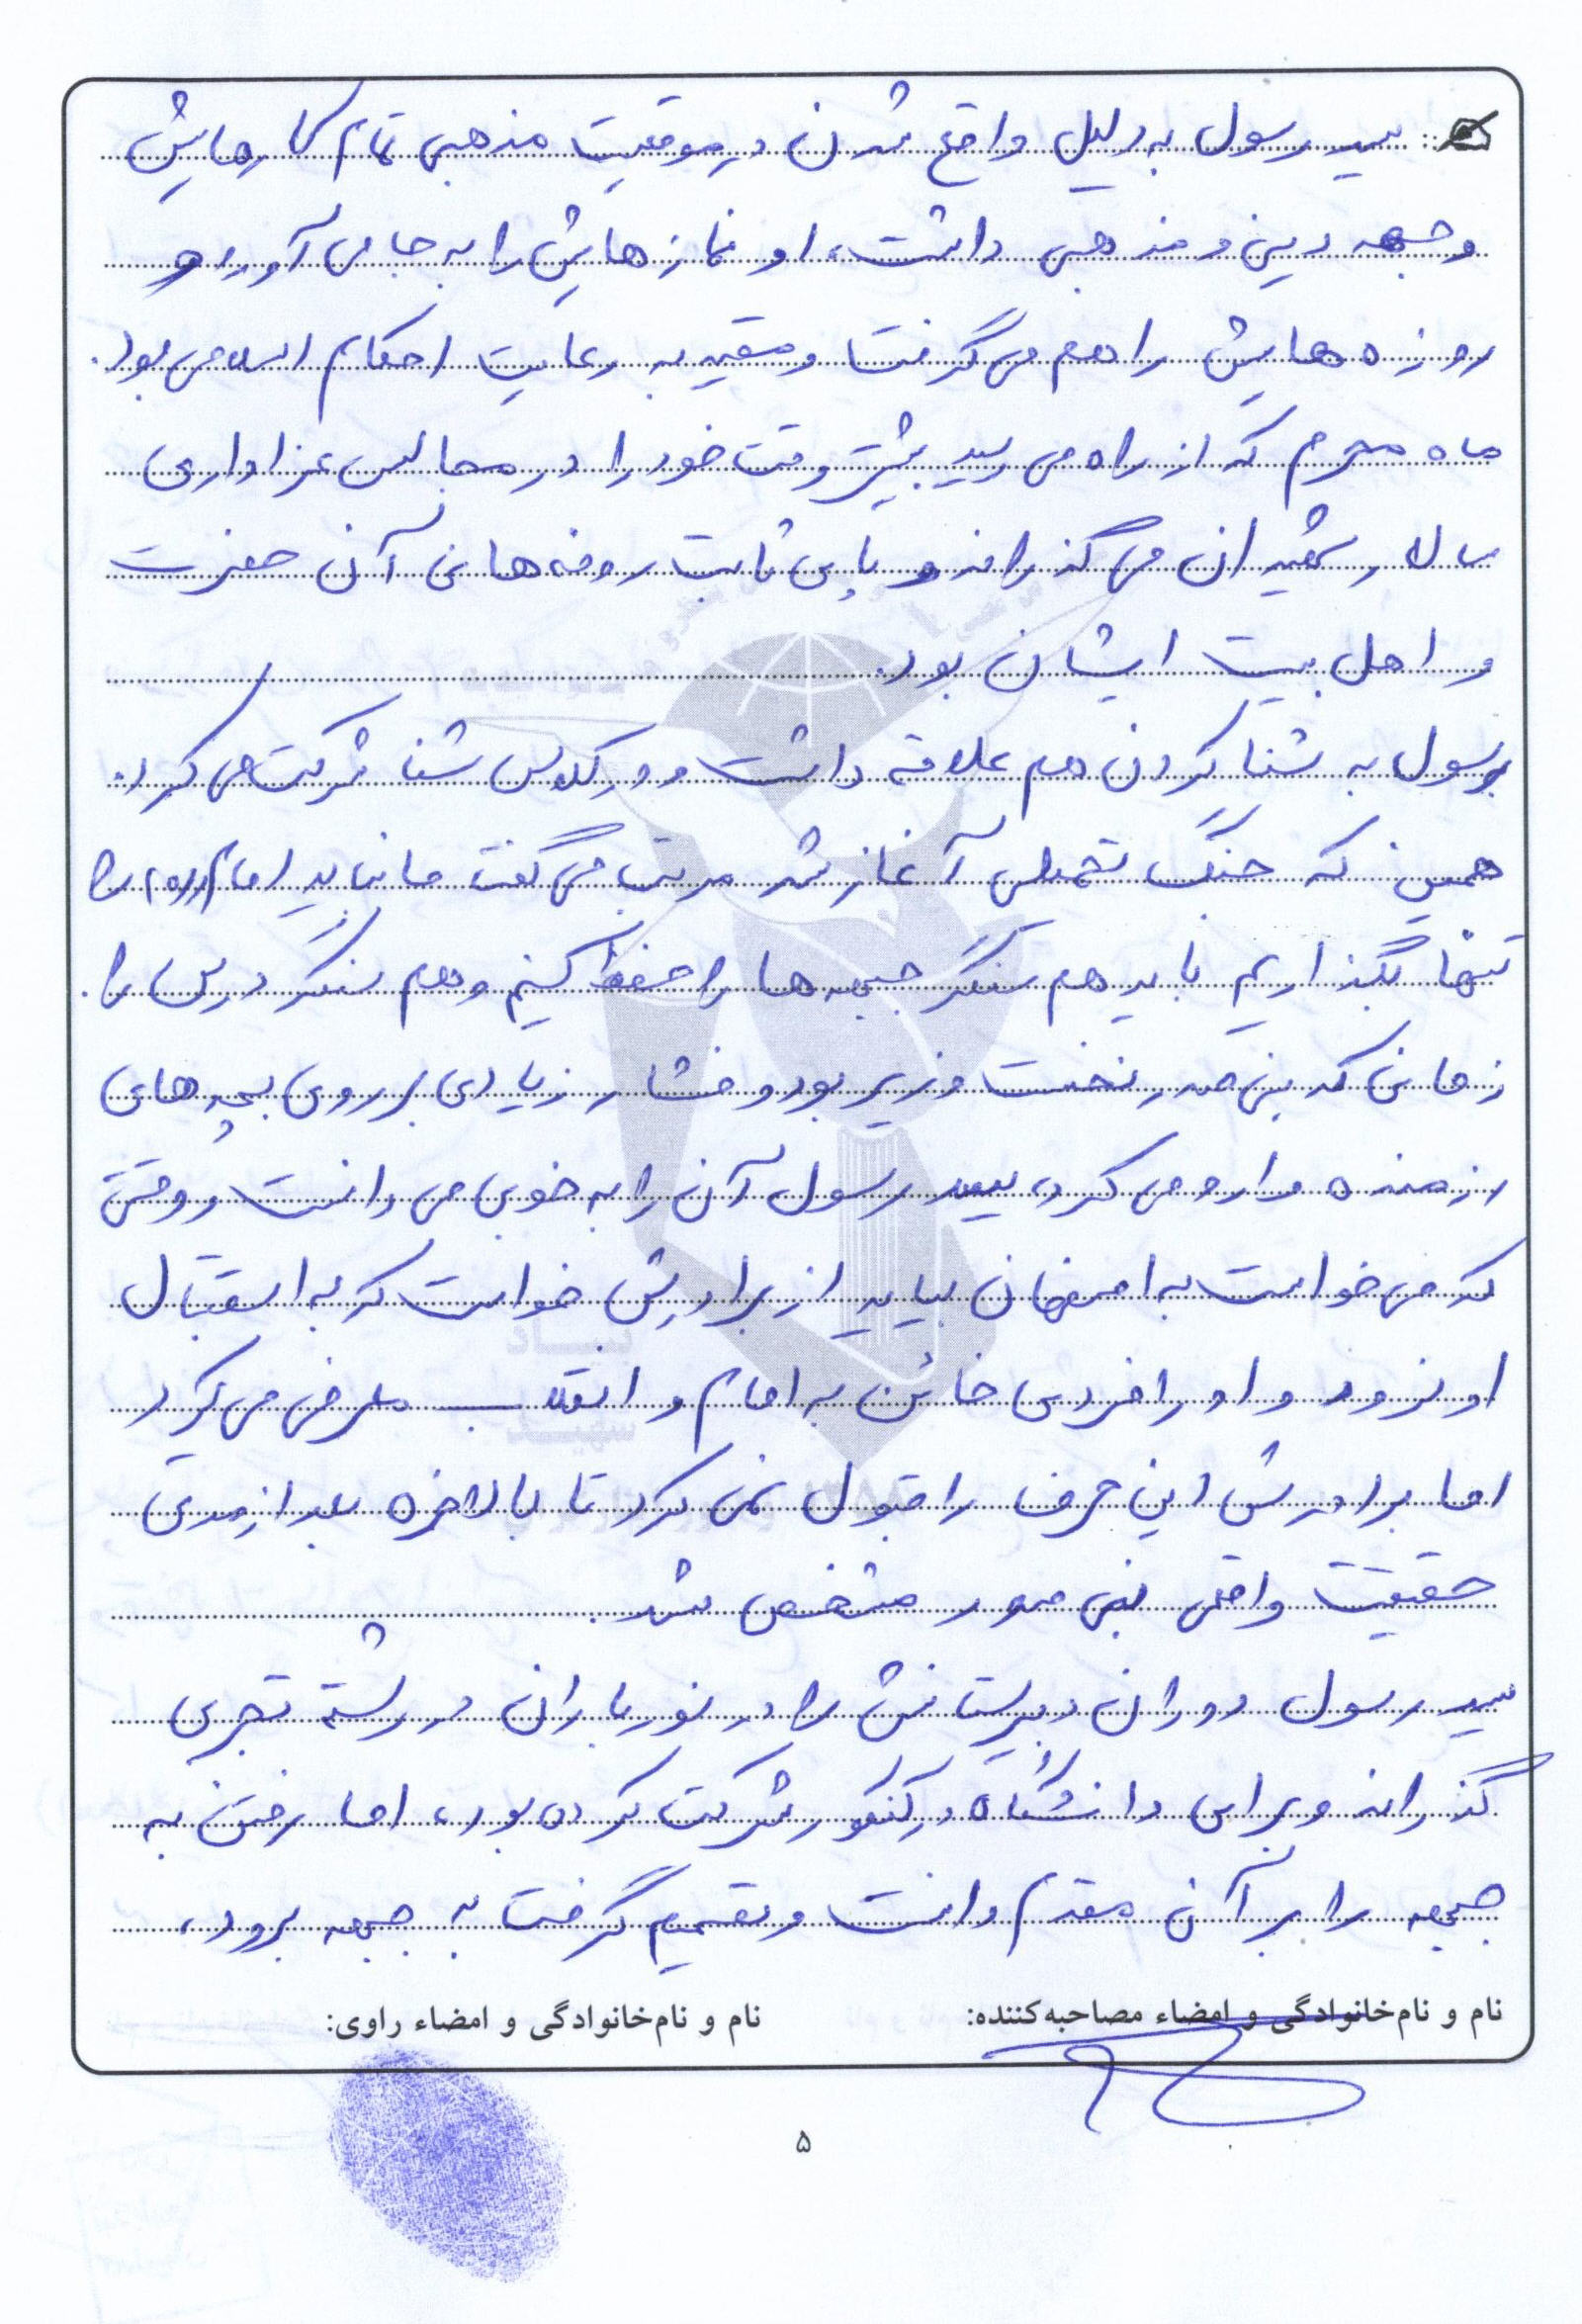 سید رسول به دلیل واقع شدن در موقعیت مذهبی تمام کارهایش
وجهه دینی و مذهبی داشت، او نمازهایش را به جا می آورد و
روزه هایش را هم می گرفت و مقید به رعایت احکام اسلامی بود.
ماه محرم که از راه می رسید بیشتر وقت خود را در مجالس عزاداری
سالار شهیدان می گذراند و پای ثابت روضه های آن حضرت
و اهل بیت ایشان بود.
رسول به شنا کردن هم علاقه داشت و در کلاس شنا شرکت می کرد.
همین که جنگ تحمیلی آغاز شد مرتب می گفت ما نباید امام (ره) را
تنها بگذاریم باید هم سنگر جبهه ها را حفظ کنیم و هم سنگر درس را.
زمانی که بنی صدر نخست وزیر بود و فشار زیادی بر روی بچه های
رزمنده وارد می کرد، سید رسول آن را به خوبی می دانست و وقتی
که می خواست به اصفهان بیاید از برادرش خواست که به استقبال
او نرود و او را فردی خائن به امام و انقلاب معرفی می کرد
اما برادرش این حرف را قبول نمی کرد تا بالاخره بعد از مدتی
حقیقت واقعی بنی صدر مشخص شد.
سید رسول دوران دبیرستانش را در نورباران در رشته تجربی
گذراند و برای دانشگاه در کنکور شرکت کرده بود، اما رفتن به
جبهه را بر آن مقدم دانست و تصمیم گرفت به جبهه برود،
نام و نام‌خانوادگی و امضاء مصاحبه‌کننده: نام و نام‌خانوادگی و امضاء راوی:
۵